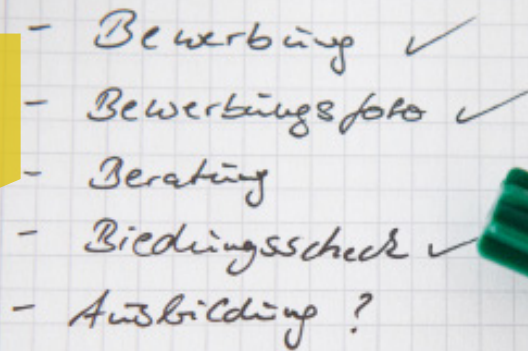 - Bewerbung ✓
- Bewerbungsfoto ✓
- Beratung
- Biedungsscheck ✓
- Ausbildung ?